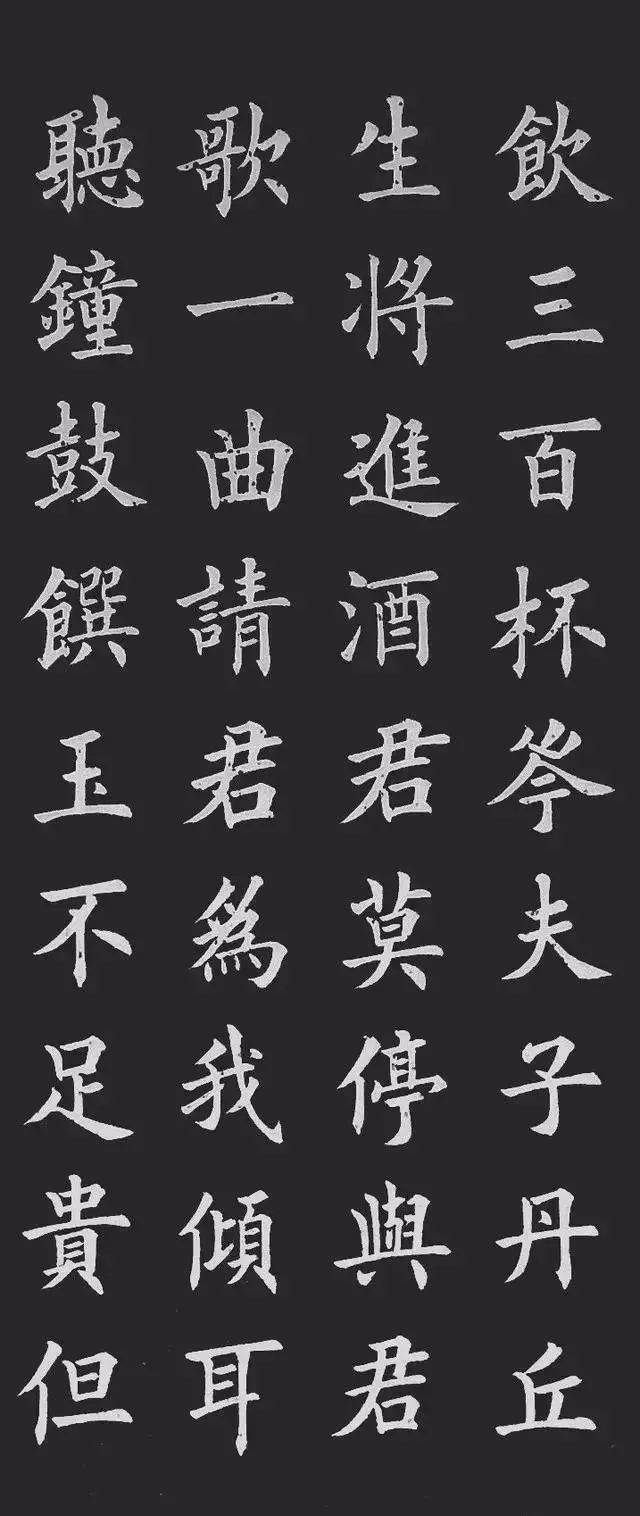 飲三百杯岑夫子丹丘
生將進酒君莫停與君
歌一曲請君為我傾耳
聽鐘鼓饌玉不足貴但